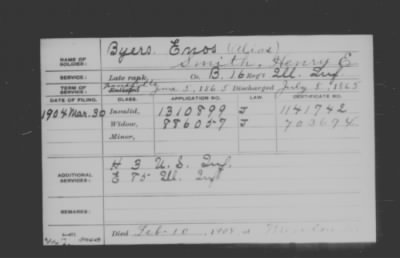 NAME OF SOLDIER: Byers, Enos (Alias)
Smith, Henry E
SERVICE: Late rank, Co. B, 16 Reg't Ill. Inf
TERM OF SERVICE: Enlisted June 3, 1865 Discharged July 8, 1865
DATE OF FILING. CLASS. APPLICATION NO. LAW. CERTIFICATE NO.
1904 Mar. 30 Invalid, 1310899 J 1141742
Widow, 886057 J 703694
Minor,
ADDITIONAL SERVICES: H 3 U.S. Inf.
E 85 Ill. Inf
REMARKS:
Died Feb. 10, 1908, at